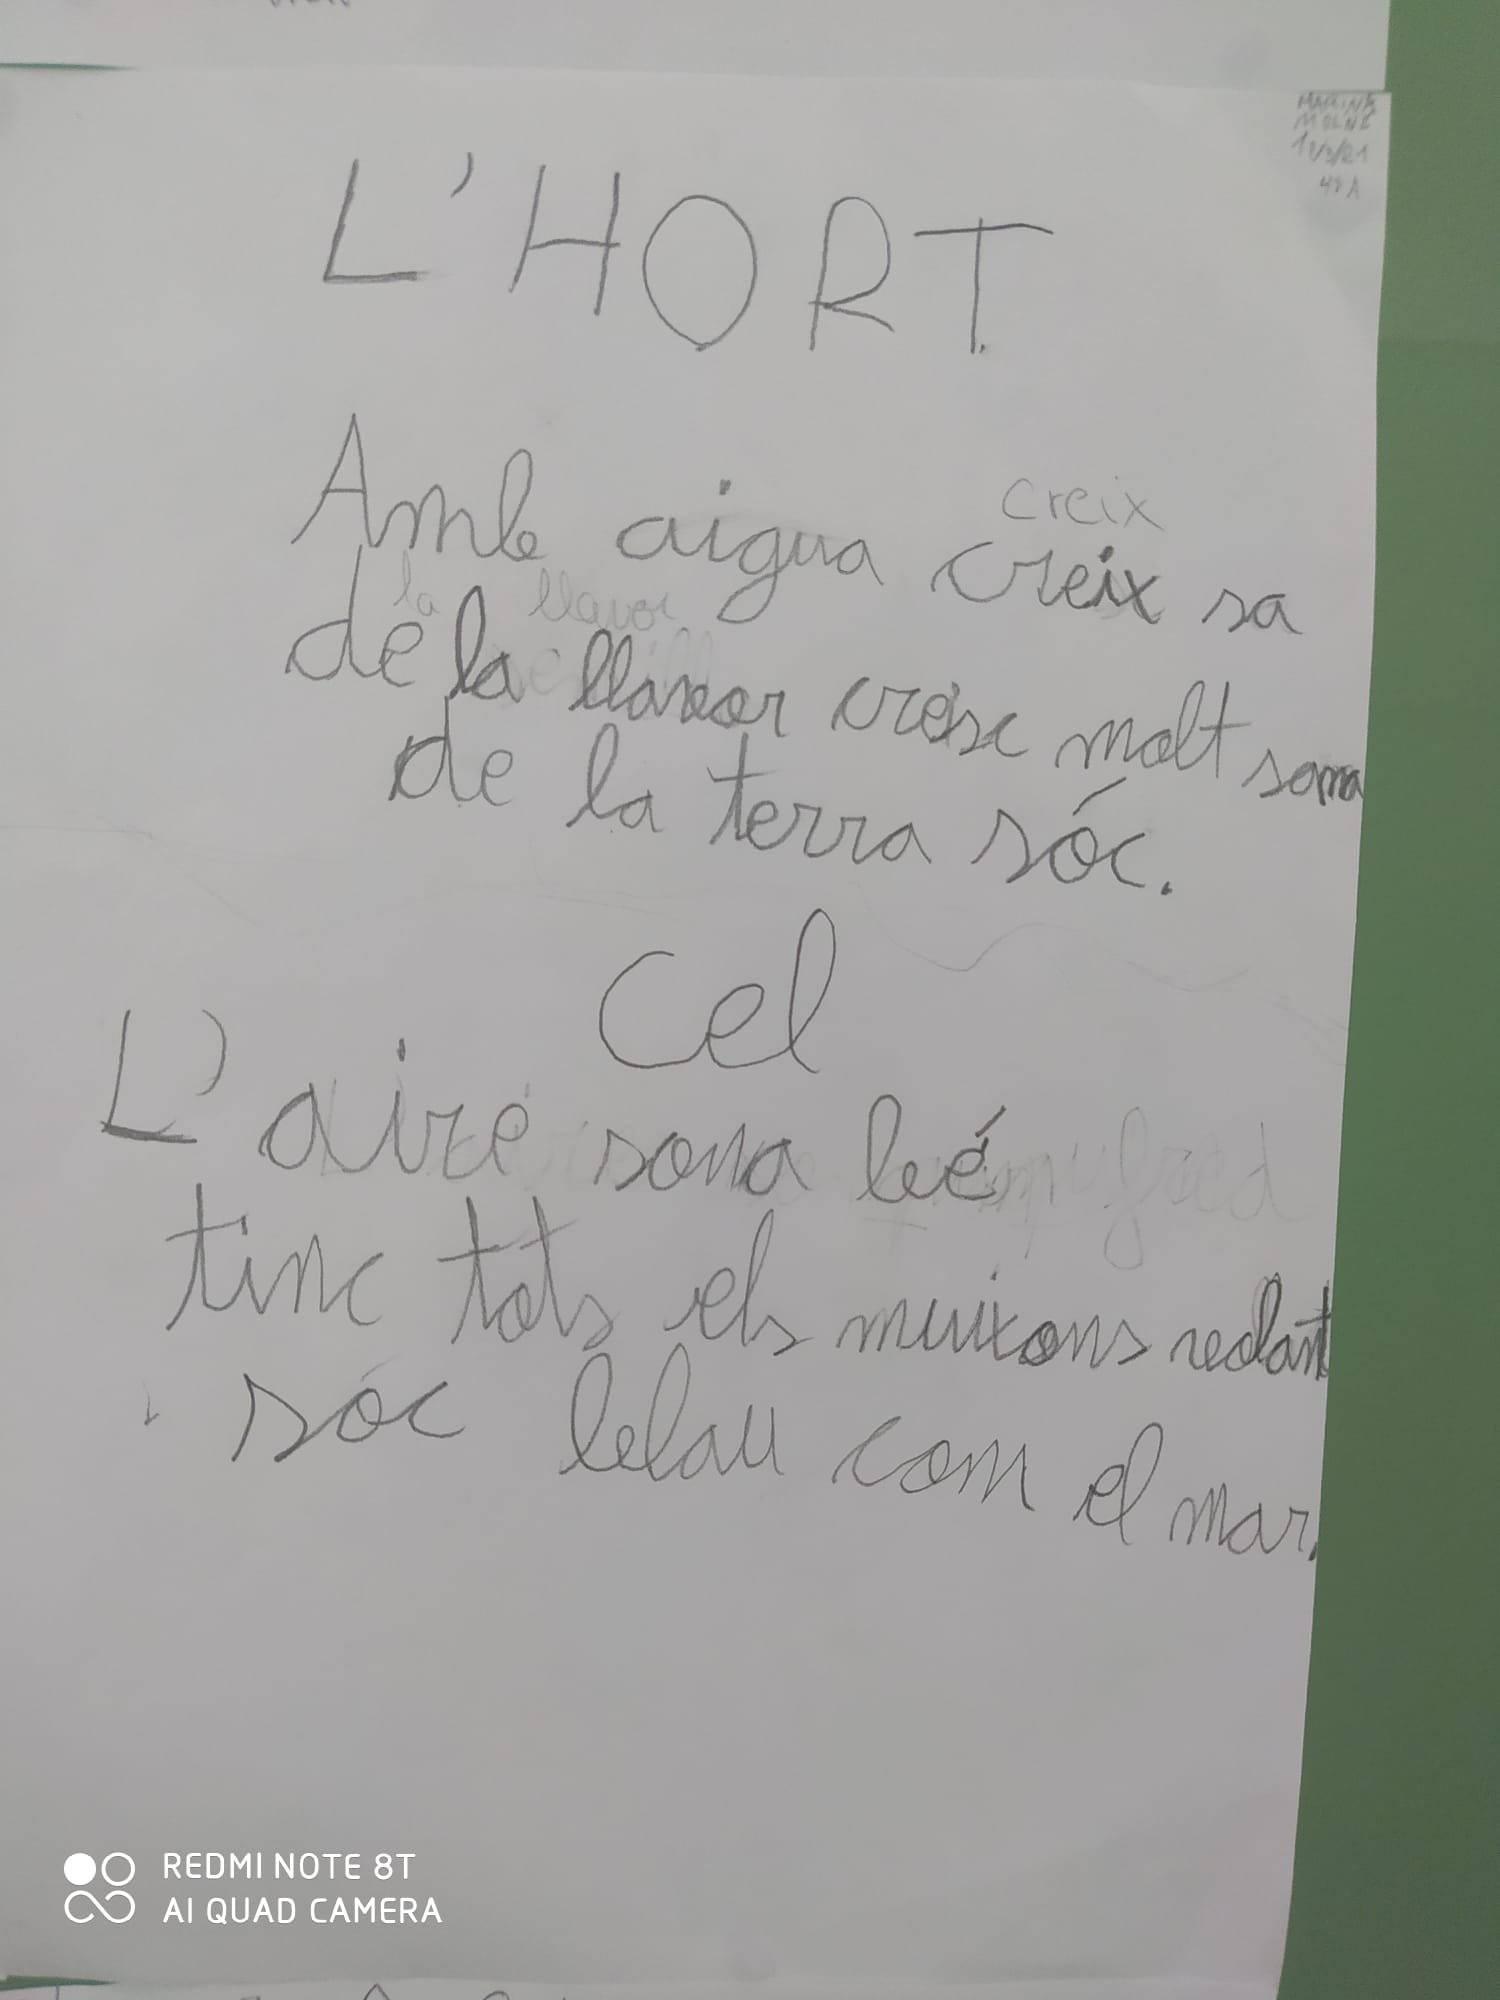 MARINA
MOLNÉ
11/3/21
4t A
L'HORT
creix
Amb aigua creix sa
la llavor
de la llavor creix molt sona
de la terra sóc.
Cel
L'aire sona bé
tinc tots els muixons volant
sóc blau com el mar.
REDMI NOTE 8T
AI QUAD CAMERA